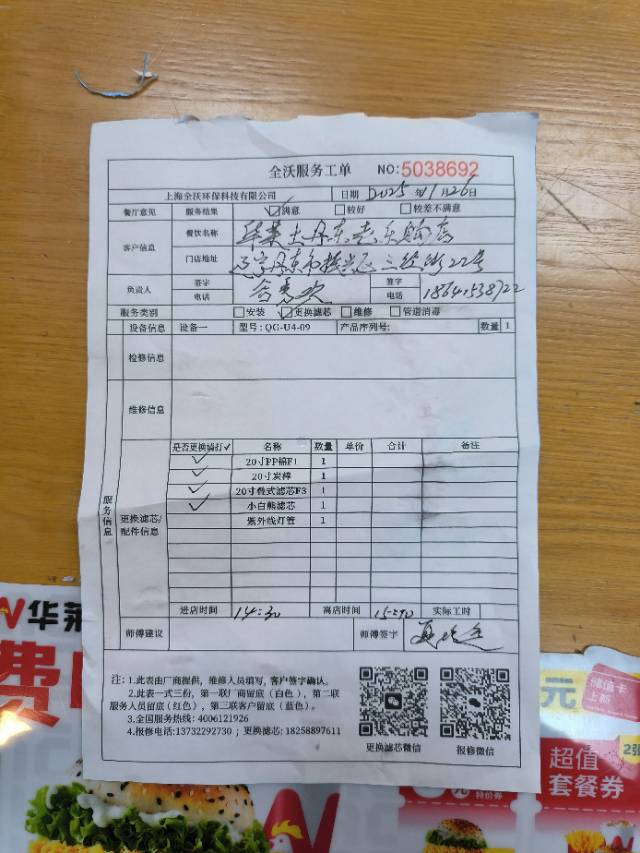 全沃服务工单 NO:5038692
上海全沃环保科技有限公司 日期 2025年1月26日
餐厅意见 服务结果 ☑满意 □较好 □较差不满意
客户信息 餐饮名称 华莱士丹东
门店地址 辽宁丹东市振兴区三经街22号
负责人 签字 签字
电话 电话
服务类别 □安装 ☑更换滤芯 □维修 □管道消毒
服务信息
设备信息 设备一 型号:QG-U4-09 产品序列号: 数量 1
检修信息
维修信息
更换滤芯/配件信息
是否更换请打✓ 名称 数量 单价 合计 备注
✓ 20寸PP棉F1 1
✓ 20寸炭棒 1
✓ 20寸叠式滤芯F3 1
✓ 小白熊滤芯 1
紫外线灯管 1
进店时间 14:30 离店时间 实际工时
师傅建议 师傅签字
注:1.此表由厂商提供,维修人员填写,客户签字确认。
2.此表一式三份,第一联厂商留底(白色),第二联
服务人员留底(红色),第三联客户留底(蓝色)。
3.全国服务热线:4006121926
4.报修电话:13732292730;更换滤芯:18258897611
更换滤芯微信 报修微信
华莱
费
元
储值卡
上新
超值
套餐券
2张
特价券